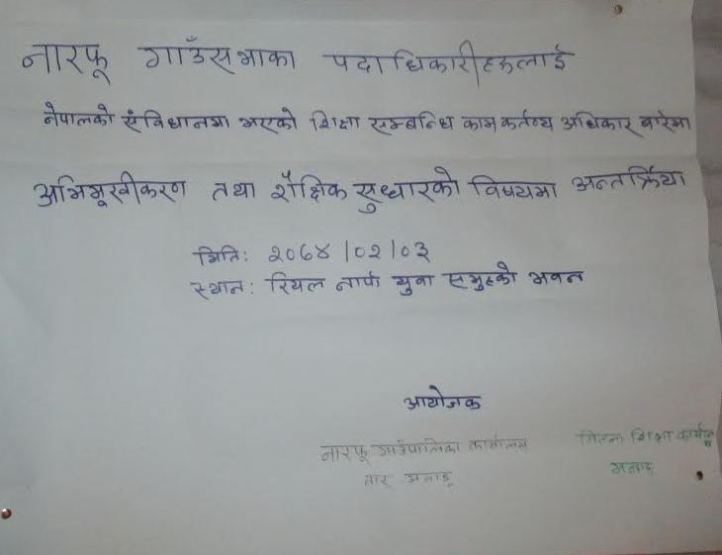 नारफू गाउँसभाका पदाधिकारीहरुलाई
नेपालको संविधानमा भएको शिक्षा सम्बन्धि काम कर्तव्य अधिकार बारेमा
अभिमूखीकरण तथा शैक्षिक सुधारको विषयमा अन्तर्क्रिया
मिति: २०७४/०२/०३
स्थान: रियल नार्पा युवा समुहको भवन
आयोजक
नारफू गाउँपालिका कार्यालय
नार मनाङ्ग
जिल्ला शिक्षा कार्यालय
मनाङ